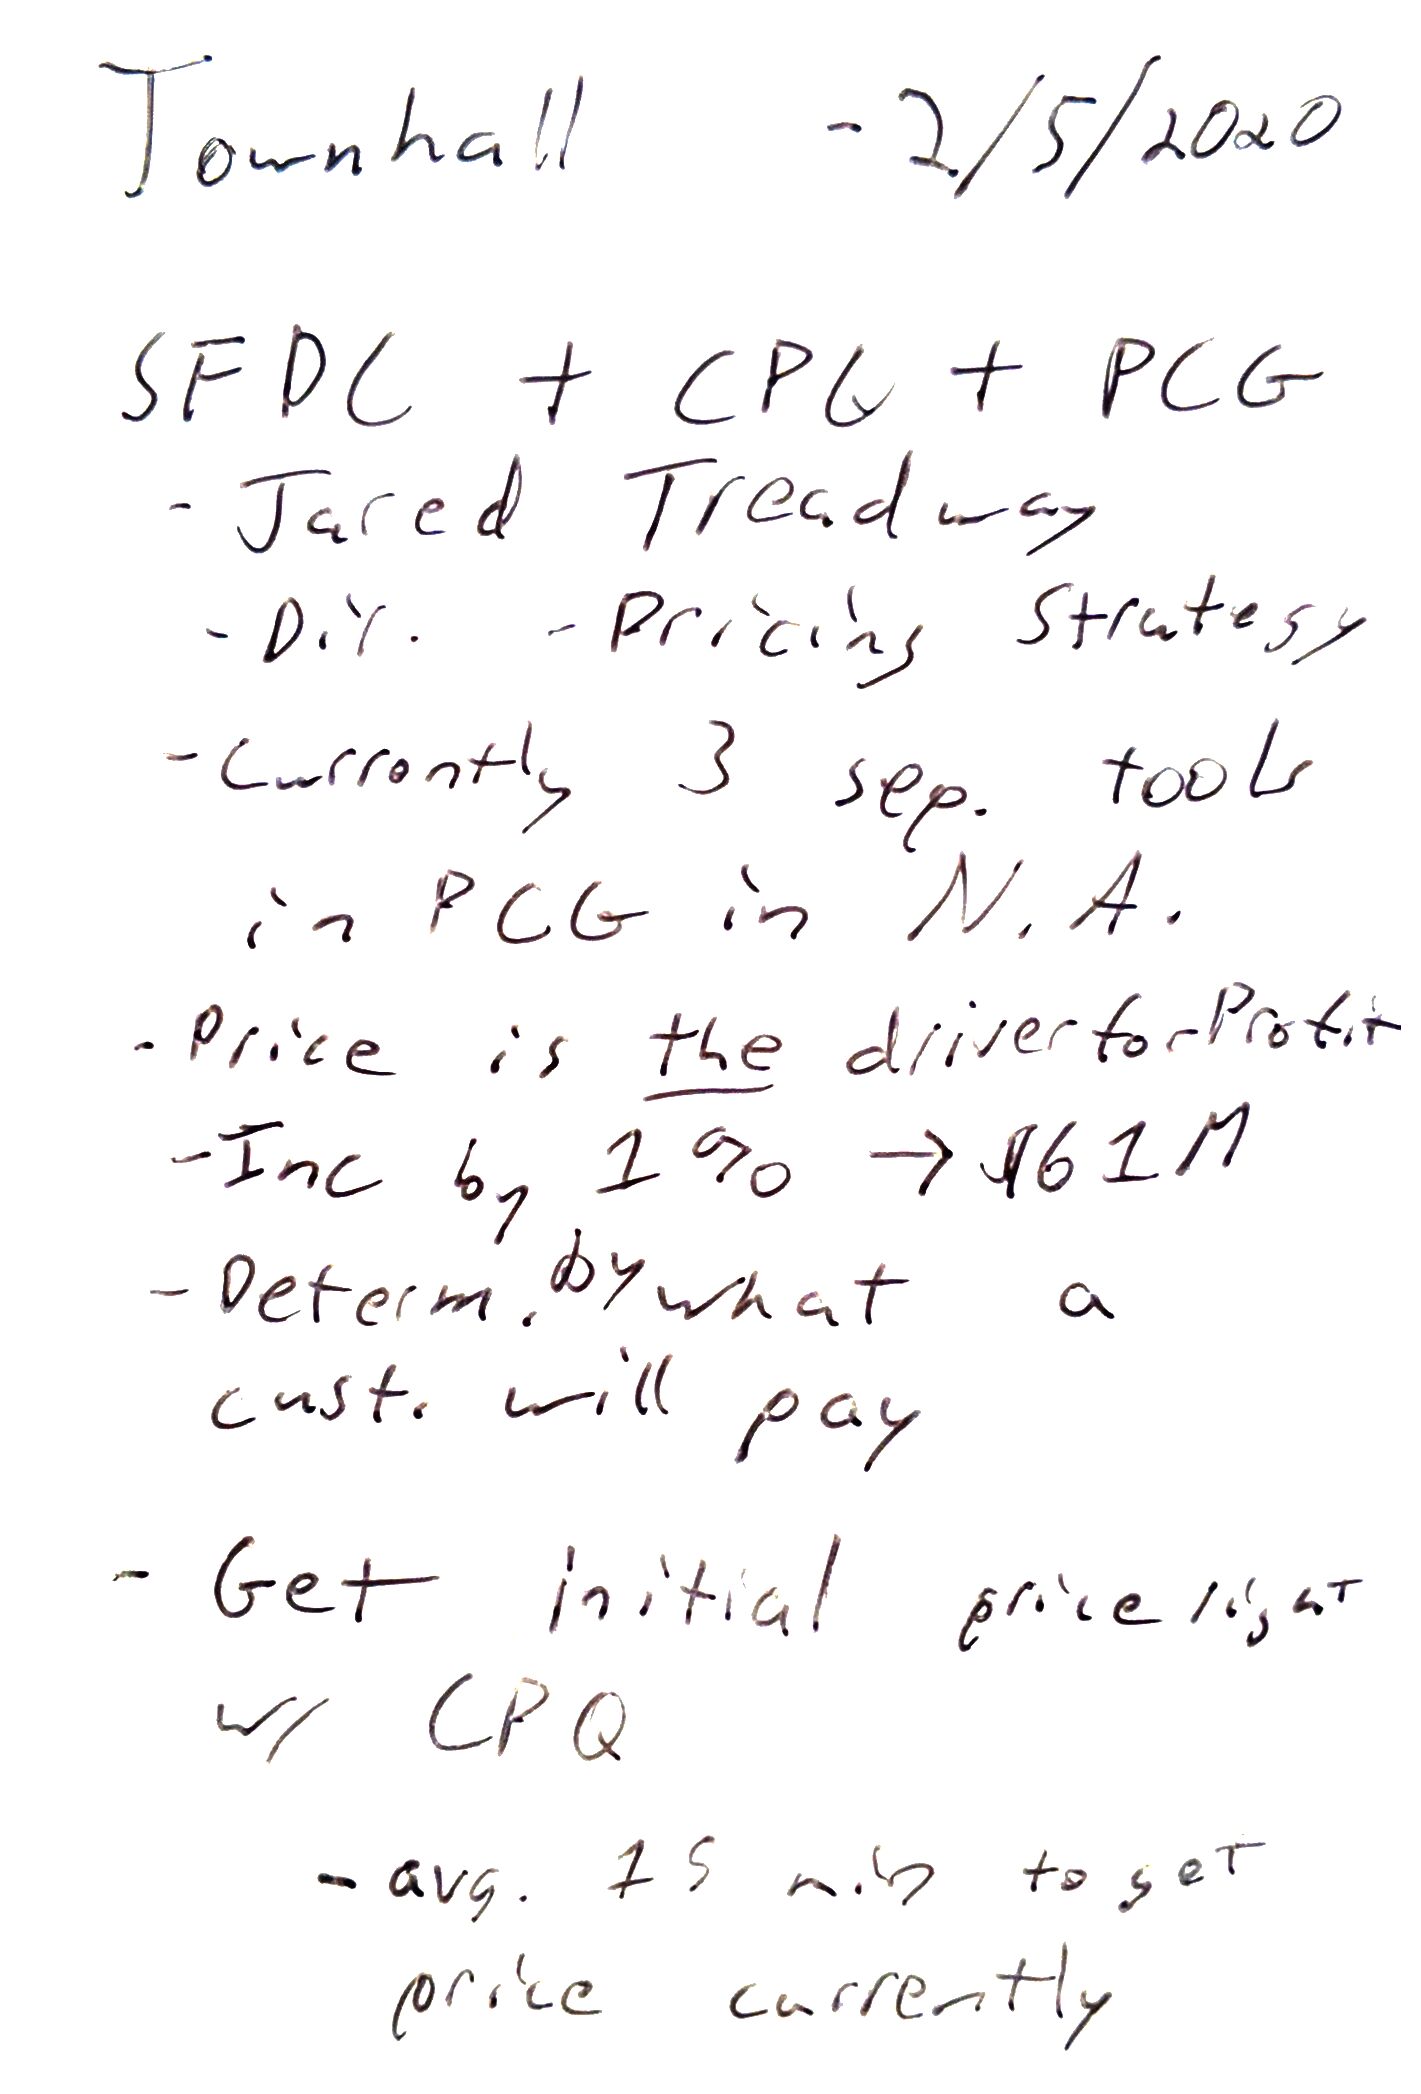 Townhall - 2/5/2020
SFDC + CPQ + PCG
- Jared Treadway
- Dir. - Pricing Strategy
- Currently 3 sep. tools
in PCG in N.A.
- Price is the driver for Profit
- Inc by 1% → $61M
- Determ. by what a
cust. will pay
- Get initial price right
w/ CPQ
- avg. 15 min to get
price currently